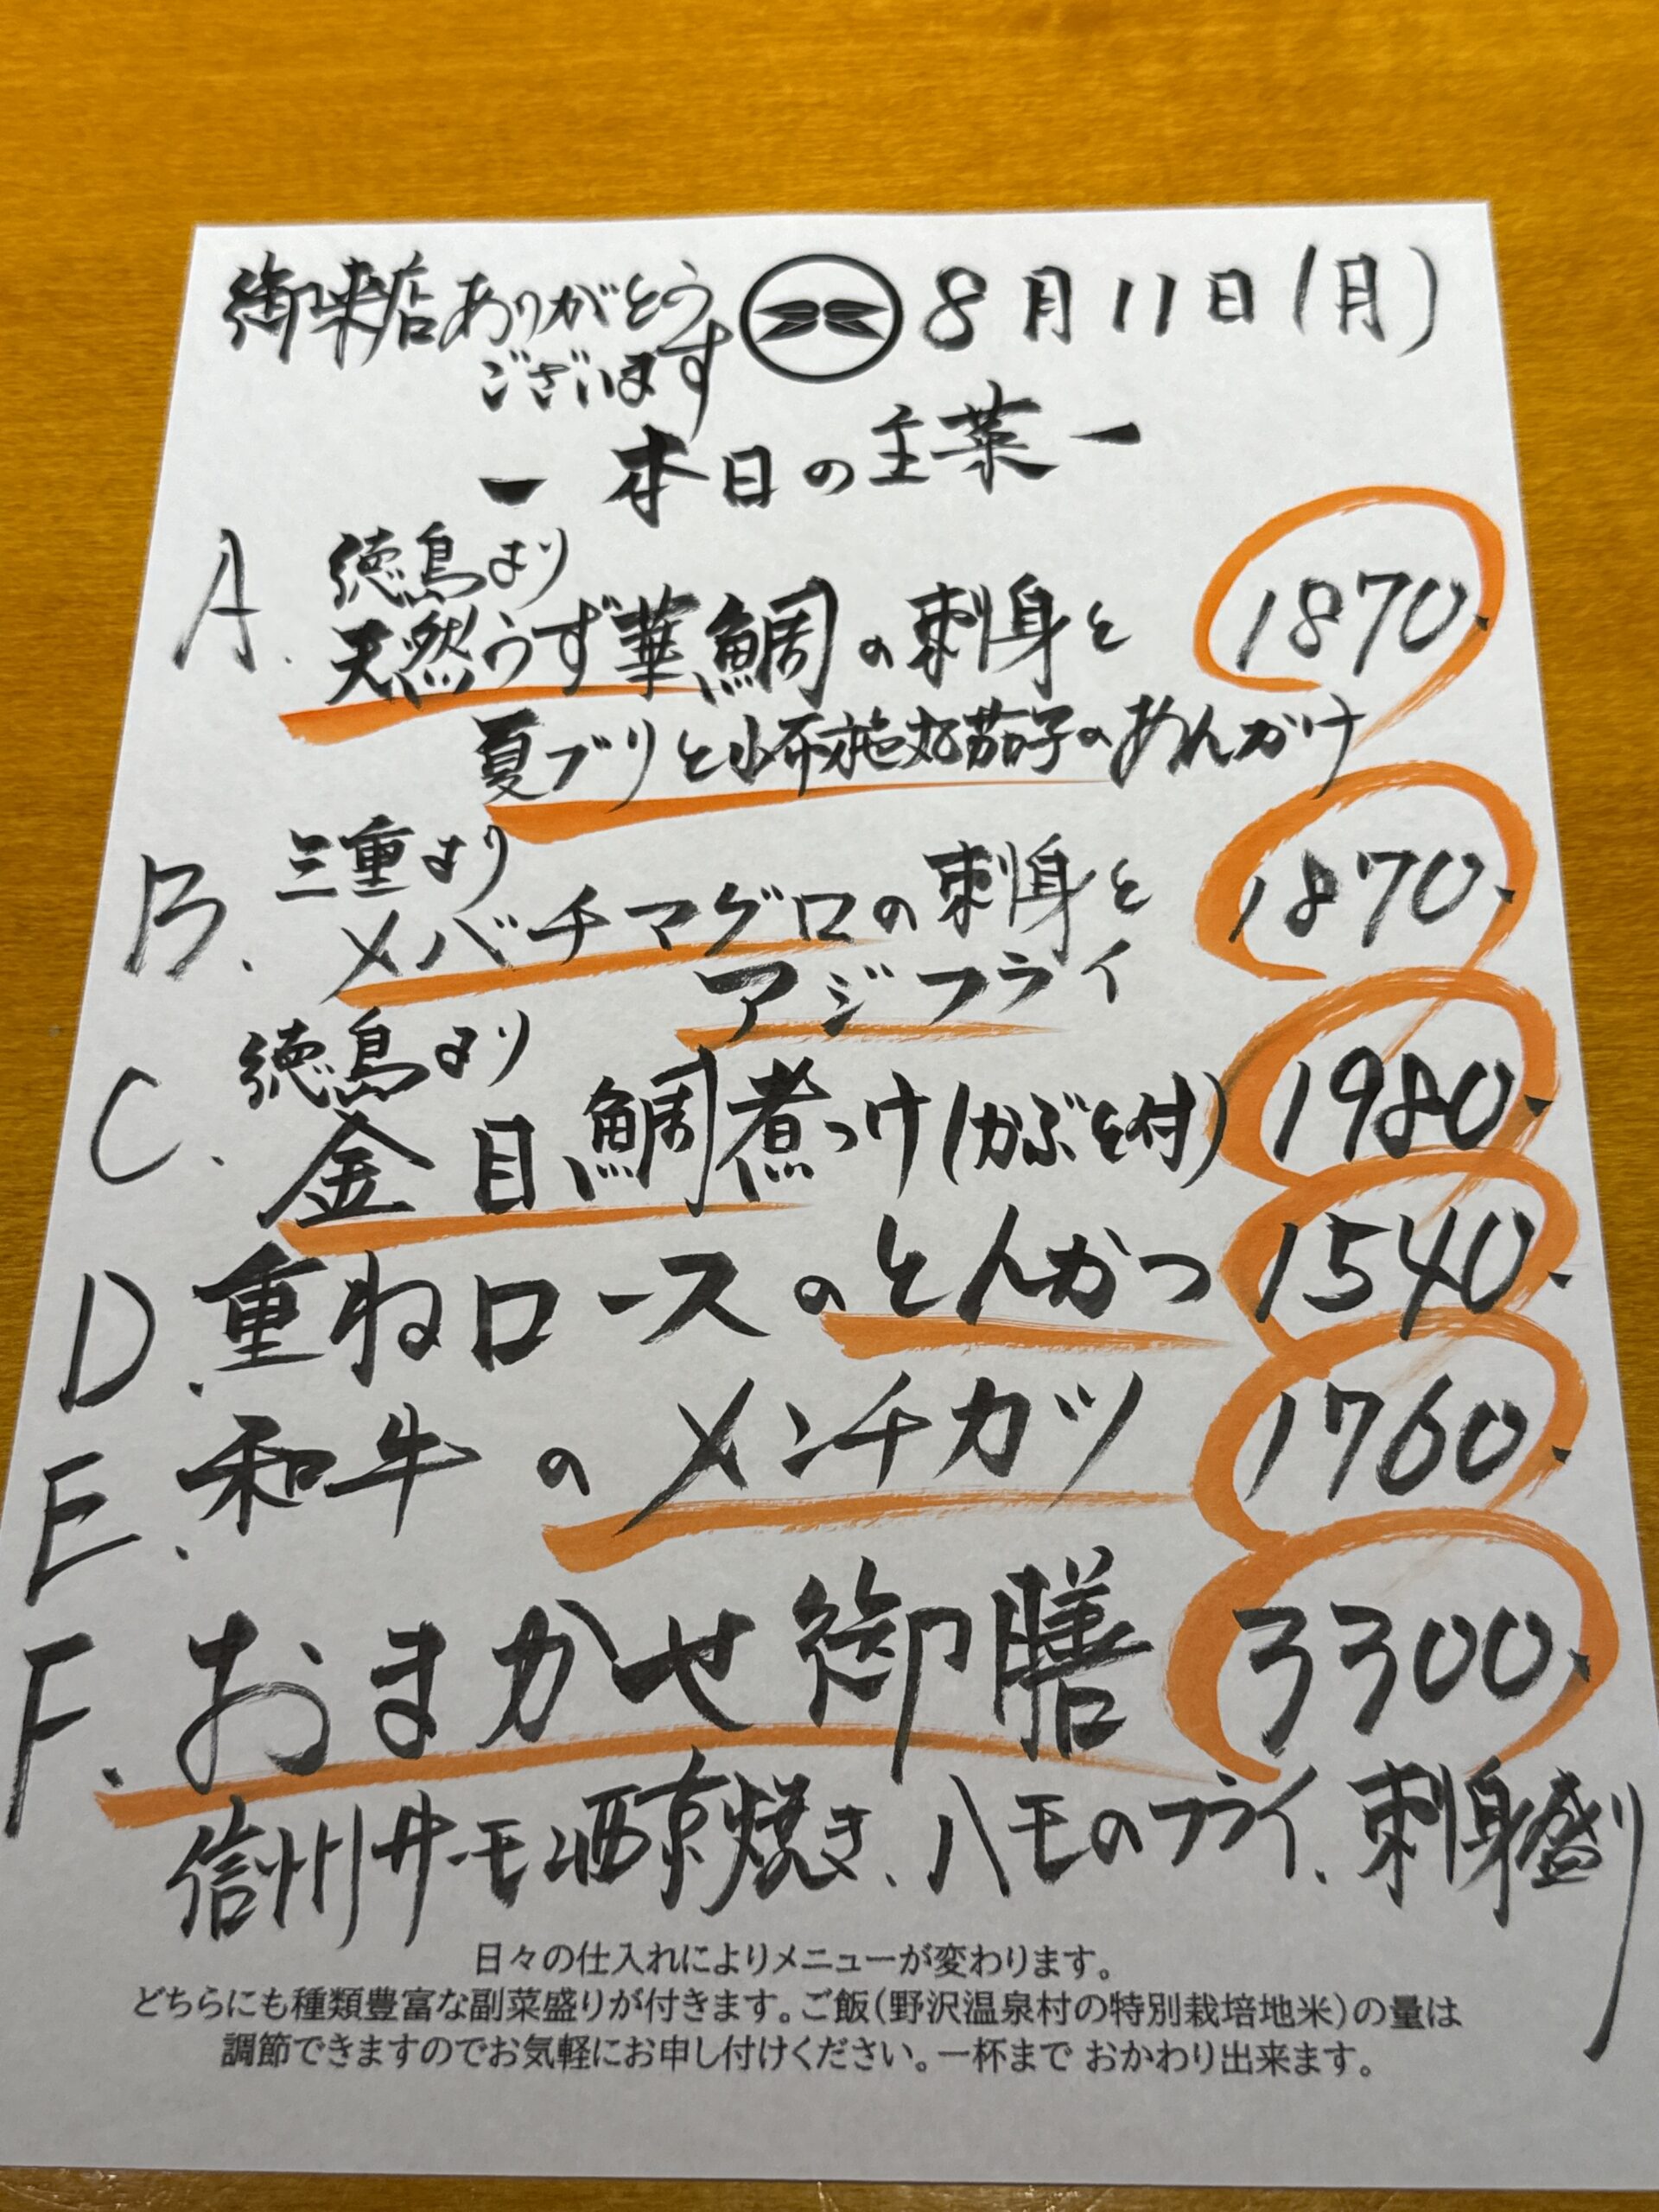 御来店ありがとう
ございます
8月11日(月)
ー本日の主菜ー
A. 徳島より
天然うず華鯛の刺身と
夏ブリと小布施丸茄子のあんかけ
1870.
B. 三重より
メバチマグロの刺身と
アジフライ
1870.
C. 徳島より
金目鯛煮つけ(かぶと付)
1980.
D. 重ねロースのとんかつ 1540.
E. 和牛のメンチカツ 1760.
F. おまかせ御膳 3300.
信州サーモン西京焼き、ハモのフライ、刺身盛り
日々の仕入れによりメニューが変わります。
どちらにも種類豊富な副菜盛りが付きます。ご飯(野沢温泉村の特別栽培地米)の量は
調節できますのでお気軽にお申し付けください。一杯まで おかわり出来ます。